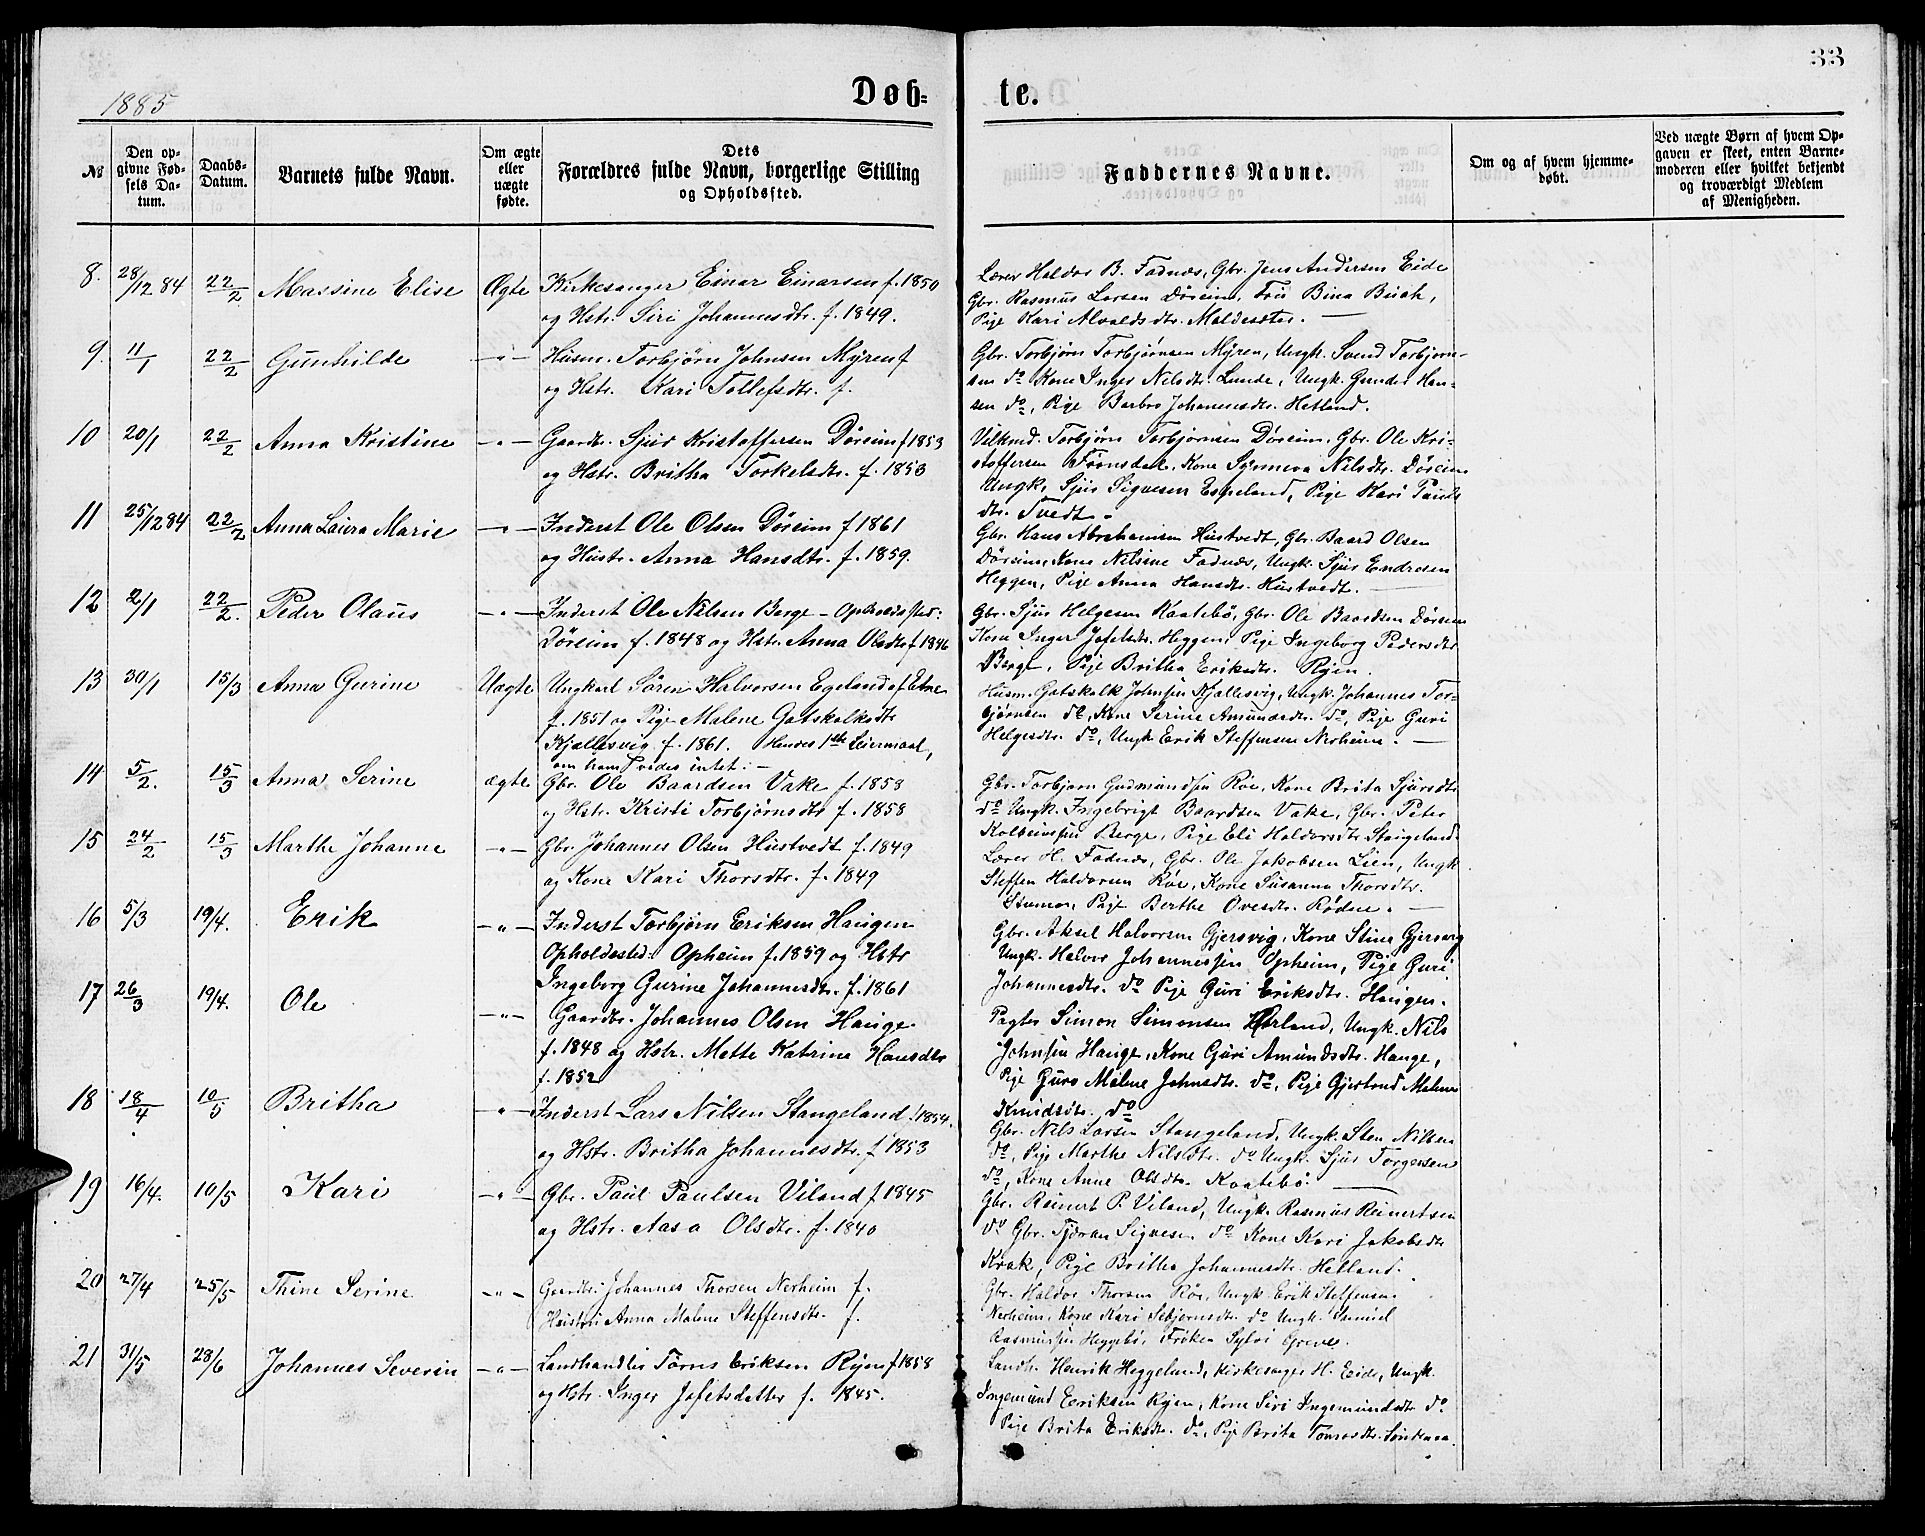 33
1885
Døb= te.
№
Den op-
givne Fød-
sels Da-
tum.
Daabs-
Datum.
Barnets fulde Navn.
Om ægte
eller
uægte
fødte.
Dets
Forældres fulde Navn, borgerlige Stilling
og Opholdssted.
Faddernes Navne.
Om og af hvem hjemme-
døbt.
Ved uægte Børn af hvem Op-
gaven er skeet, enten Barne-
moderen eller hvilket bekjendt
og troværdigt Medlem
af Menigheden.
8. 28/12 84 22/2 Massine Elise Ægte Kirkesanger Einar Einarsen f. 1850
og Hstr. Siri Johannesdtr. f. 1849.
Lærer Haldor B. Fadnæs, Gbr. Jens Andersen Eide
Gbr. Rasmus Larsen Døreim, Fru Bina Buch,
Pige Kari Alvaldsdtr. Maldesæter.
9. 11/1 22/2 Gunhilde -"- Husm. Torbjørn Johnsen Myren f
og Hstr. Kari Tollefsdtr. f.
Gbr. Torbjørn Torbjørnsen Myren, Ungk. Svend Torbjørn-
sen do Kone Inger Nilsdtr. Lunde, Ungk. Gunder Han-
sen do, Pige Barbro Johannesdtr. Hetland.
10 20/1 22/2 Anna Kristine -"- Gaardbr. Sjur Kristoffersen Døreim f 1853
og Hstr. Britha Torkelsdtr. f. 1853
Velkmd. Torbjørn Torbjørnsen Døreim, Gbr. Ole Kri-
stoffersen Førnsdal, Kone Synneva Nilsdtr. Døreim
Ungk. Sjur Sigvesen Espeland, Pige Kari Pauls
dtr. Tvedt.
11 25/12 84 22/2 Anna Laura Marie -"- Inderst Ole Olsen Døreim f 1861
og Hustr. Anna Hansdtr. f. 1859.
Gbr. Hans Abrahamsen Hustvedt, Gbr. Baard Olsen
Døreim, Kone Nilsine Fadnæs, Ungk. Sjur Endresen
Heggen, Pige Anna Hansdtr. Hustvedt.
12 2/1 22/2. Peder Olaus -"- Inderst Ole Nilsen Berge - Opholdssted:
Døreim f. 1848 og Hstr. Anna Olsdtr f 1846
Gbr. Sjur Helgesen Kaatebø, Gbr. Ole Baardsen Døreim
Kone Inger Jofetsdtr. Heggen, Pige Ingeborg Pedersdtr
Berge, Pige Britha Eriksdtr. Ryen.
13 30/1 15/3 Anna Gurine Uægte Ungkarl Søren Halvorsen Egeland af Etne
f. 1851 og Pige Malene Gotskalksdtr
Kjallesvig f. 1861. Hendes 1ste Leiermaal,
om ham vides intet.
Husm. Gotskalk Johnsen Kjallesvig, Ungk. Johannes Tor-
bjørnsen do, Kone Serine Amundsdtr. do, Pige Guri
Helgesdtr. do, Ungk Erik Steffensen Nerheim.
14 5/2. 15/3 Anna Serine ægte Gbr. Ole Baardsen Vake f. 1853
og Hstr. Kristi Torbjørnsdtr f. 1858
Gbr. Torbjørn Gudmundsen Røe, Kone Brita Sjursdtr
do Ungk. Ingebrigt Baardsen Vake, Gbr. Peter
Kolbeinsen Berge, Pige Eli Haldorsdtr Stangeland
15 24/2 15/3 Marthe Johanne -"- Gbr. Johannes Olsen Hustvedt f. 1849
og Kone Kari Thorsdtr. f. 1849
Lærer H. Fadnæs, Gbr. Ole Jakobsen Lien, Ungk
Steffen Haldorsen Røe, Kone Susanna Thorsdtr.
Stumo, Pige Berthe Ovesdtr. Røden.
16 5/3 19/4. Erik -"- Inderst Torbjørn Eriksen Haugen
Opholdssted: Opheim f. 1859 og Hstr
Ingeborg Gurine Johannesdtr. f. 1861
Gbr. Aksel Halvorsen Gjersvig, Kone Stine Gjersvig
Ungk. Halvor Johannessen Opheim, Pige Guri
Johannesdtr. do Pige Guri Eriksdtr. Haugen.
17 26/3 19/4. Ole -"- Gaardbr. Johannes Olsen Hauge
f. 1848 og Hstr. Mette Katrine Hansdtr
f. 1852
Pagter Simon Simonsen Hørland, Ungk. Nils
Johnsen Hauge, Kone Guri Amundsdtr. Hauge,
Pige Guro Malene Johnsdtr. do, Pige Gjertrud Malene
Knudsdtr. do
18 18/4 10/5 Britha -"- Inderst Lars Nilsen Stangeland f 1854.
og Hstr. Britha Johannesdtr. f 1853
Gbr. Nils Larsen Stangeland, Ungk. Sten Nilsen
do, Pige Marthe Nilsdtr. do Ungk. Sjur Torgersen
do, Kone Anne Olsdtr. Kvatebø.
19 16/4. 10/5 Kari -"- Gbr. Paul Paulsen Viland f 1845
og Hstr. Aasa Olsdtr. f. 1840
Gbr. Reinert P. Viland, Ungk. Rasmus Reinertsen
do Gbr. Tjeran Sigvesen do Kone Kari Jakobsdtr
Krak, Pige Britha Johannesdtr. Hetland.
20 27/4 25/5 Thine Serine -"- Gaardbr. Johannes Thorsen Nerheim f.
Hustru Anna Malene Steffensdtr. f.
Gbr. Haldor Thorsen Røe, Ungk Erik Steffensen
Nerheim, Kone Kari Sebjørnsdtr. do Ungk Samuel
Rasmussen Heggebø, Frøken Sylvi Greve.
21 31/5 28/6 Johannes Severin -"- Landhandler Tørris Eriksen Ryen f 1858
og Hstr. Inger Jofetsdatter f. 1845.
Landh. Henrik Heggeland, Kirkesanger H. Eide, Ungk.
Ingemund Eriksen Ryen, Kone Siri Ingemundsdtr do
Pige Brita Eriksdtr. do, Pige Brita Tomasdtr.